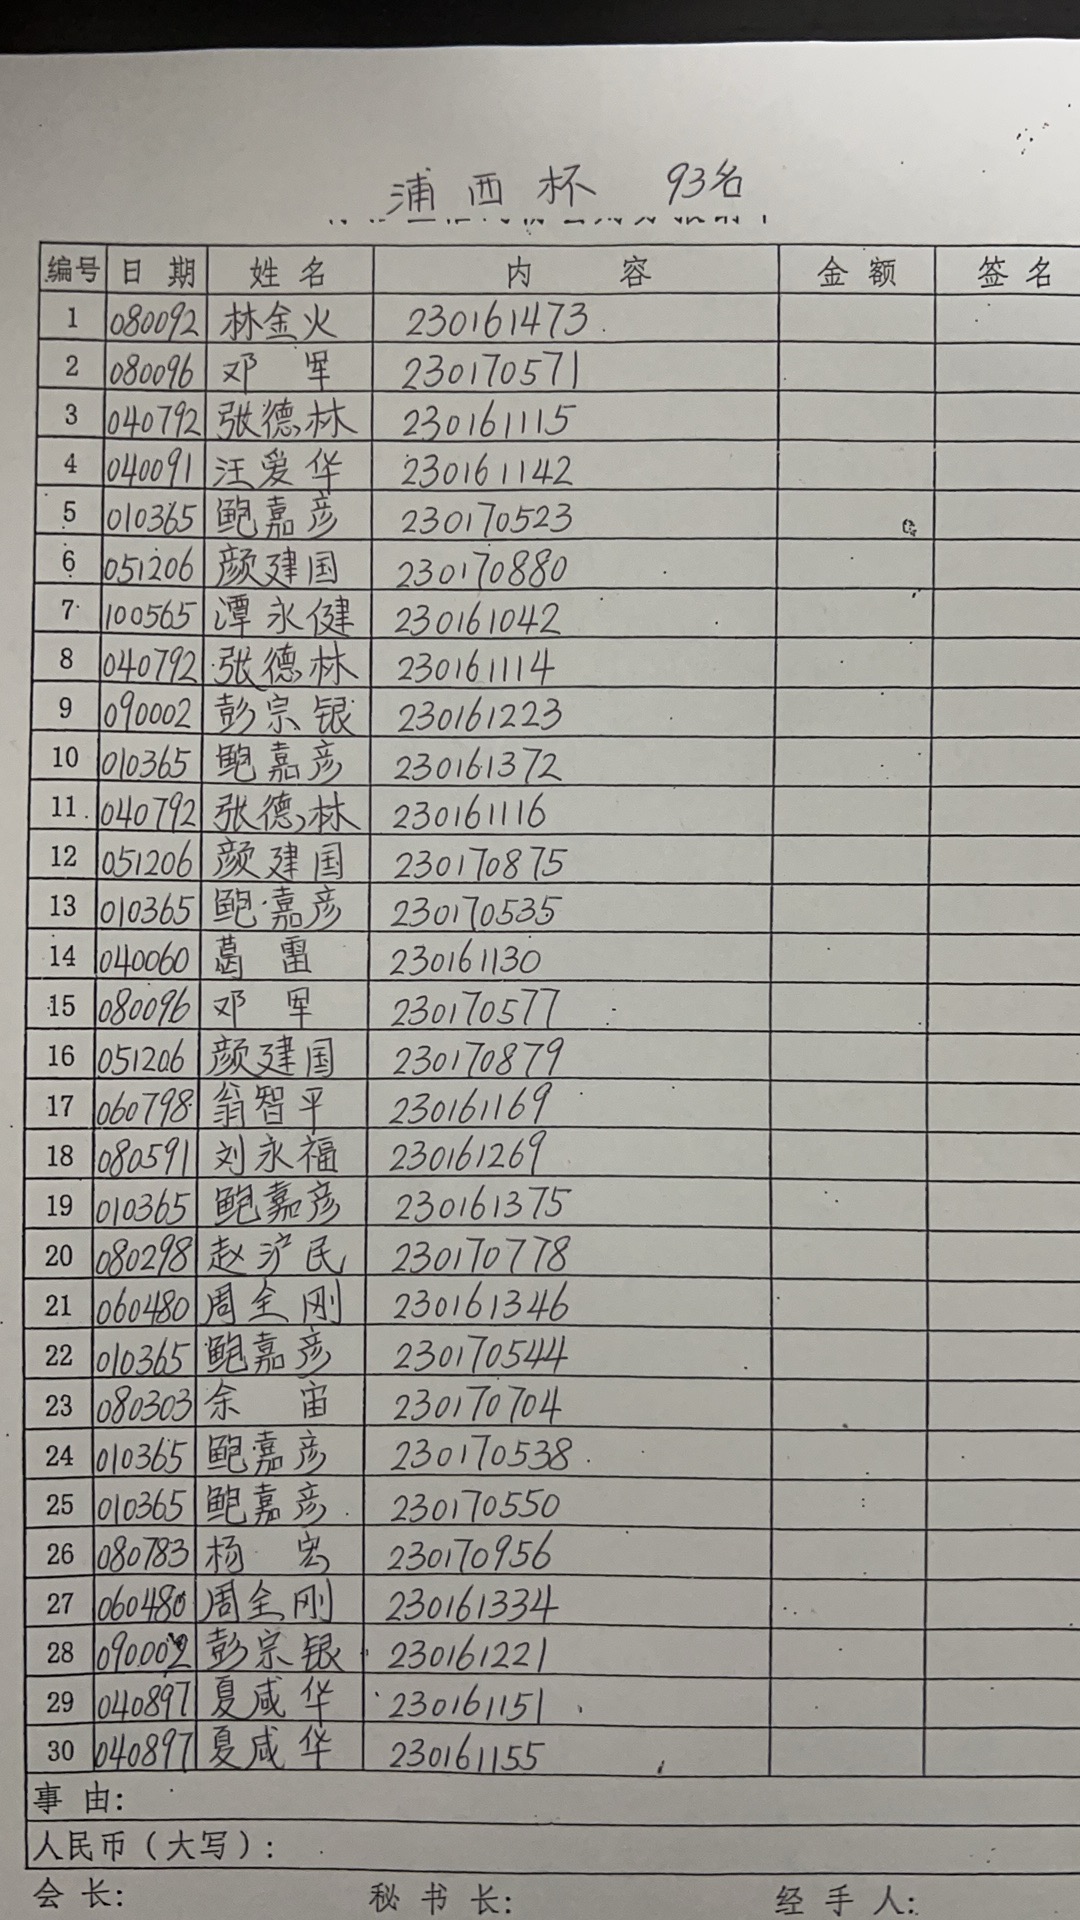 浦西杯 93名
编号 日期 姓名 内容 金额 签名
1 080092 林金火 230161473
2 080096 邓军 230170571
3 040792 张德林 230161115
4 040091 汪爱华 230161142
5 010365 鲍嘉彦 230170523
6 051206 颜建国 230170880
7 100565 潭永健 230161042
8 040792 张德林 230161114
9 090002 彭宗银 230161223
10 010365 鲍嘉彦 230161372
11 040792 张德林 230161116
12 051206 颜建国 230170875
13 010365 鲍嘉彦 230170535
14 040060 葛雷 230161130
15 080096 邓军 230170577
16 051206 颜建国 230170879
17 060798 翁智平 230161169
18 080591 刘永福 230161269
19 010365 鲍嘉彦 230161375
20 080298 赵沪民 230170778
21 060480 周全刚 230161346
22 010365 鲍嘉彦 230170544
23 080303 余宙 230170704
24 010365 鲍嘉彦 230170538
25 010365 鲍嘉彦 230170550
26 080783 杨宏 230170956
27 060480 周全刚 230161334
28 090002 彭宗银 230161221
29 040897 夏咸华 230161151
30 040897 夏咸华 230161155
事由:
人民币（大写）:
会长: 秘书长: 经手人: